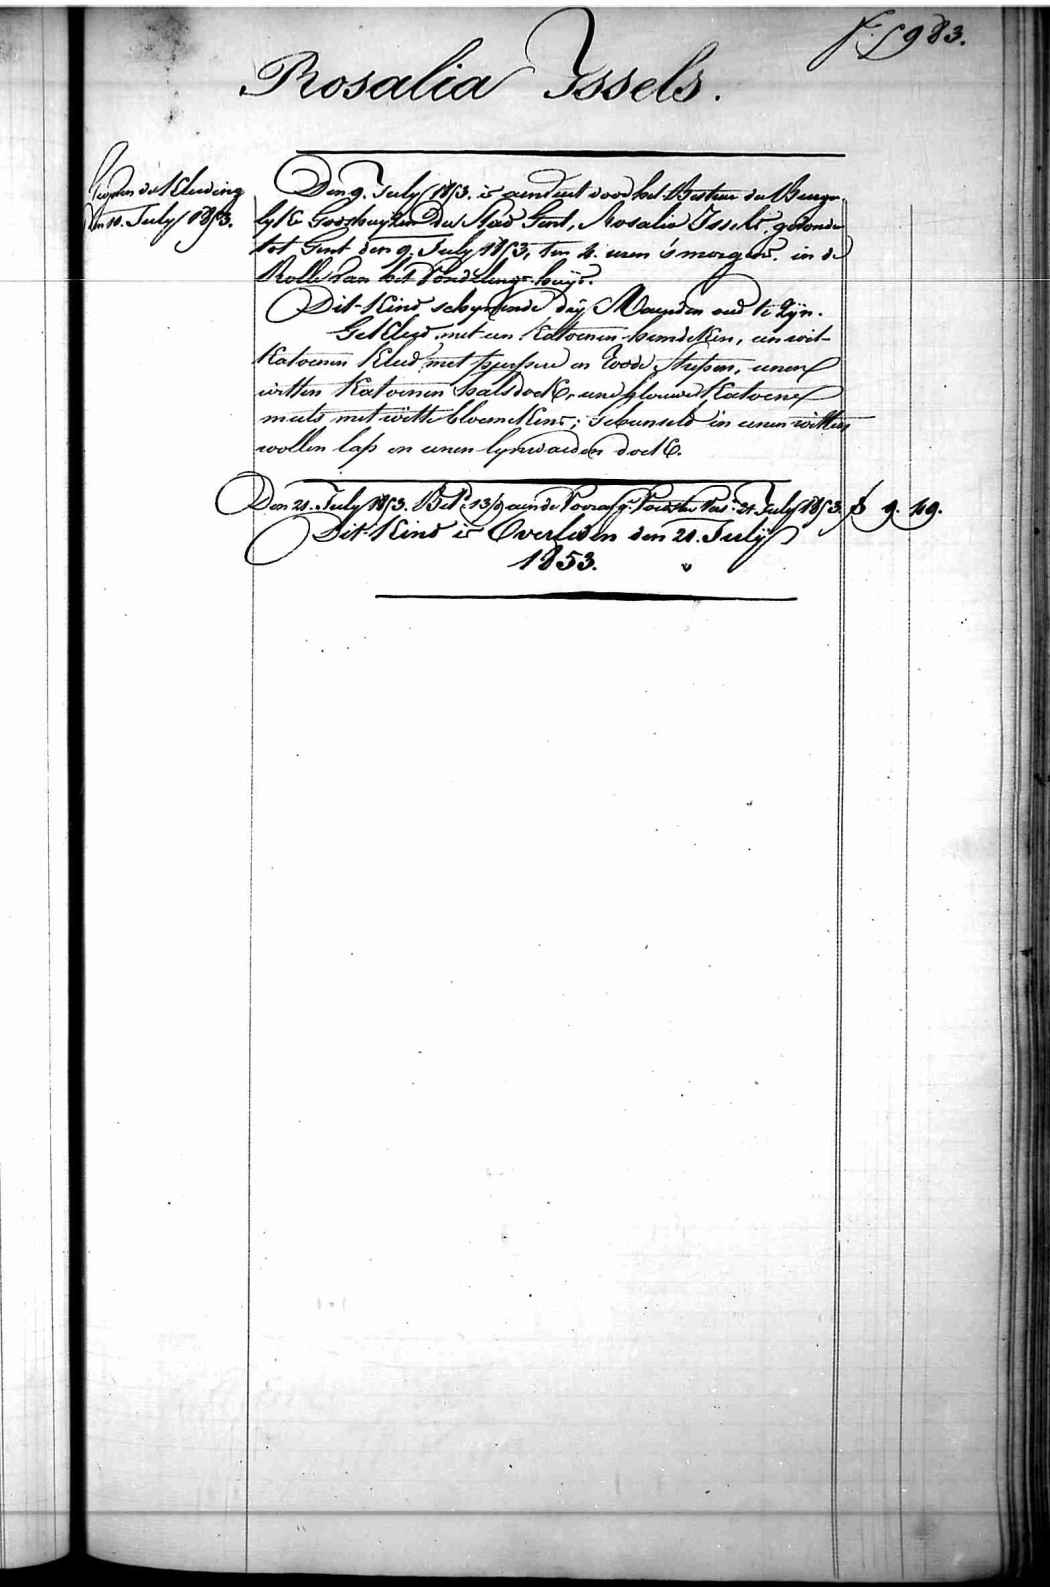 983.
Rosalia Issels.
de Kleeding
den 10. July 1853.
Den 9. July 1853. is aenveert door het Bestuer der Burger-
lyke Godshuyzen der Stad Gent, Rosalia Issels, gevonden
tot Gent den 9. July 1853, ten 4. uren 's morgens, in de
Rolle van het Vondelings-huys.
Dit Kind scheynende dry Maenden oud te zyn.
Gekleed met een Katoenen hemdeken, een wit
Katoenen Kleed met purpere en Roode strepen, eenen
witten Katoenen halsdoek, eene blouwe Katoene
muts met witte bloemekens; gebunseld in eenen witten
wollen lap en eenen lynwaeden doek.
Den 21. July 1853. Bet. 13/ aen de 21 July 1853. 9. 49.
Dit Kind is Overleden den 21. July
1853.